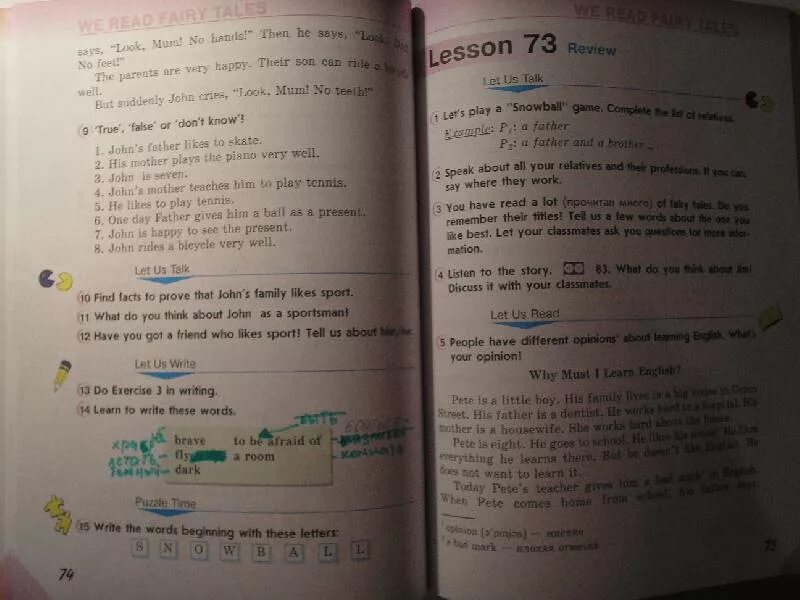 WE READ FAIRY TALES
says, "Look, Mum! No hands!" Then he says, "Look, Dad!
No feet!"
The parents are very happy. Their son can ride a
well.
But suddenly John cries, "Look, Mum! No teeth!"
9 'True', 'false' or 'don't know'!
1. John's father likes to skate.
2. His mother plays the piano very well.
3. John is seven.
4. John's mother teaches him to play tennis.
5. He likes to play tennis.
6. One day Father gives him a ball as a present.
7. John is happy to see the present.
8. John rides a bicycle very well.
Let Us Talk
10 Find facts to prove that John's family likes sport.
11 What do you think about John as a sportsman!
12 Have you got a friend who likes sport! Tell us about him/her.
Let Us Write
13 Do Exercise 3 in writing.
14 Learn to write these words.
быть
brave to be afraid of
fly a room
комната
dark
Puzzle Time
15 Write the words beginning with these letters:
S N O W B A L L
74
WE READ FAIRY TALES
Lesson 73 Review
Let Us Talk
1 Let's play a "Snowball" game. Complete the list of relatives.
Example: P1: a father
P2: a father and a brother ...
2 Speak about all your relatives and their professions. If you can,
say where they work.
3 You have read a lot (прочитал много) of fairy tales. Do you
remember their titles! Tell us a few words about the one you
like best. Let your classmates ask you questions for more infor-
mation.
4 Listen to the story. 83. What do you think about
Discuss it with your classmates.
Let Us Read
5 People have different opinions¹ about learning English. What's
your opinion!
Why Must I Learn English?
Pete is a little boy. His family lives in a big house in Green
Street. His father is a dentist. He works hard in a hospital. His
mother is a housewife. She works hard about the house.
Pete is eight. He goes to school. He likes his school. He likes
everything he learns there. But he doesn't like English. He
does not want to learn it.
Today Pete's teacher gives him a bad mark² in English.
When Pete comes home from school, his father says,
¹ opinion [ə'pɪnjən] — мнение
² a bad mark — плохая отметка
75